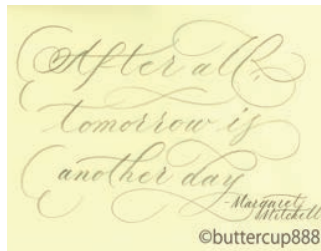 After all,
tomorrow is
another day
-Margaret
Mitchell
©buttercup888